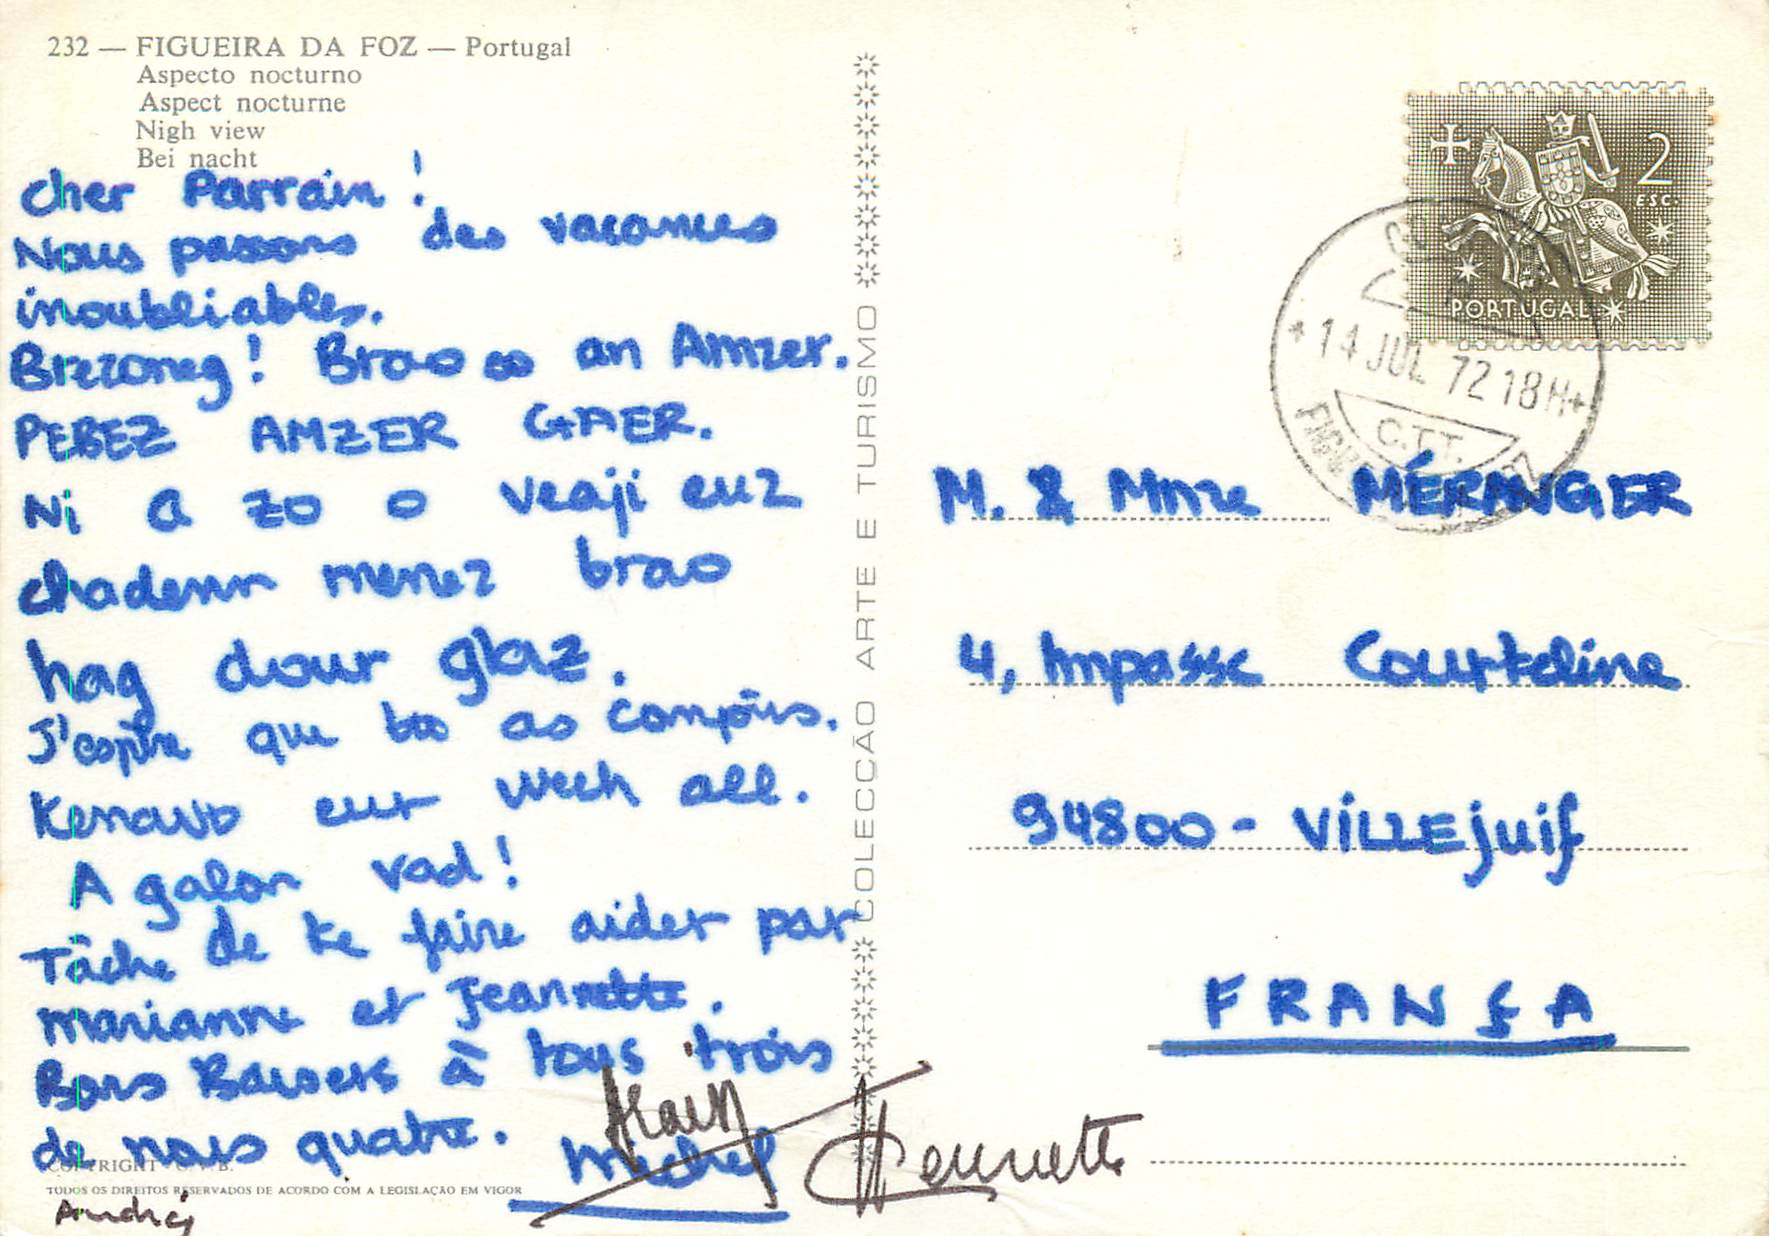 232 — FIGUEIRA DA FOZ — Portugal
Aspecto nocturno
Aspect nocturne
Nigh view
Bei nacht
cher Parrain !
Nous passons des vacances
inoubliables.
Brezoneg ! Brao eo an Amzer.
PEBEZ AMZER GAER.
Ni a zo o veaji euz
chadenn menez brao
hag dour glaz.
J'espère que to as compris.
Kenavo eur wech all.
A galon vad !
Tâche de te faire aider par
marianne et Jeannette.
Bons Baisers à tous trois
de nous quatre.
Michel
Alain
Jeannette
André
COPYRIGHT C. V. B.
TODOS OS DIREITOS RESERVADOS DE ACORDO COM A LEGISLAÇÃO EM VIGOR
COLECÇÃO ARTE E TURISMO
2
ESC.
PORTUGAL
14 JUL 72 18H
C.T.T.
M. & Mme MÉRANGIER
4, Impasse Courteline
94800 - VILLEjuif
FRANÇA